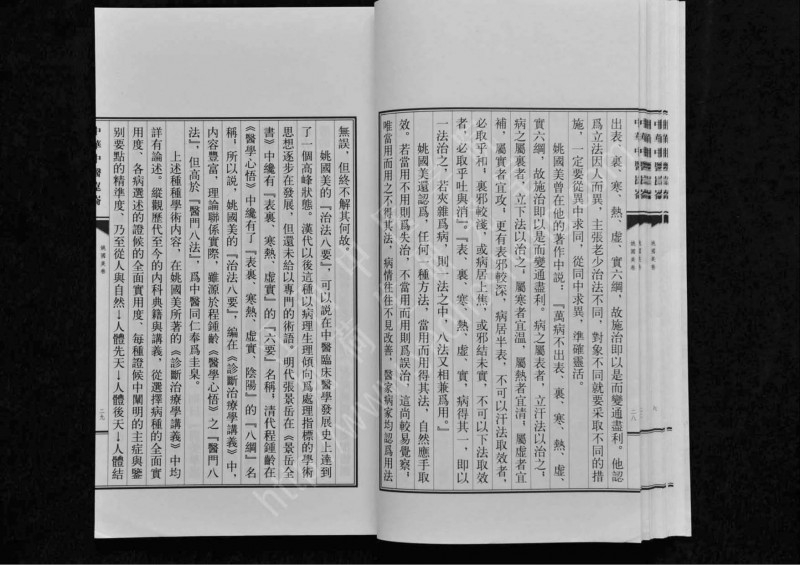 出表、裏、寒、熱、虛、實六綱，故施治即以是而變通盡利。他認
爲立法因人而異，主張老少治法不同，對象不同就要采取不同的措
施，一定要從異中求同，從同中求異，準確靈活。
姚國美曾在他的著作中説：『萬病不出表、裏、寒、熱、虛、
實六綱，故施治即以是而變通盡利。病之屬表者，立汗法以治之，
病之屬裏者，立下法以治之，屬寒者宜温，屬熱者宜清，屬虛者宜
補，屬實者宜攻，更有表邪較深，病居半表，不可以汗法取效者，
必取乎和，裏邪較淺，或病居上焦，或邪結未實，不可以下法取效
者，必取乎吐與消』『表、裏、寒、熱、虛、實，病得其一，即以
一法治之，若夾雜爲病，則一法之中，八法又相兼爲用。』
姚國美還認爲，任何一種方法，當用而用得其法，自然應手取
效。若當用不用則爲失治，不當用而用則爲誤治，這尚較易覺察，
唯當用而用之不得其法，病情往往不見改善，醫家病家均認爲用法
無誤，但終不解其何故。
姚國美的『治法八要』，可以説在中醫臨床醫學發展史上達到
了一個高峰狀態。漢代以後這種以病理生理傾向爲處理指標的學術
思想逐步在發展，但還未給以專門的術語。明代張景岳在《景岳全
書》中纔有『表裏、寒熱、虛實』的『六要』名稱；清代程鍾齡在
《醫學心悟》中纔有了『表裏、寒熱、虛實、陰陽』的『八綱』名
稱；所以説，姚國美的『治法八要』，編在《診斷治療學講義》中，
内容豐富，理論聯係實際，雖源於程鍾齡《醫學心悟》之『醫門八
法』，但高於『醫門八法』，爲中醫同仁泰爲圭臬。
上述種種學術内容，在姚國美所著的《診斷治療學講義》中均
詳有論述。縱觀歷代至今的内科典籍與講義，從選擇病種的全面實
用度、各病選述的證候的全面實用度、每種證候中闡明的主症與鑒
别要點的精準度、乃至從人與自然→人體先天→人體後天→人體結
姚國美卷
二九
姚國美卷
二八